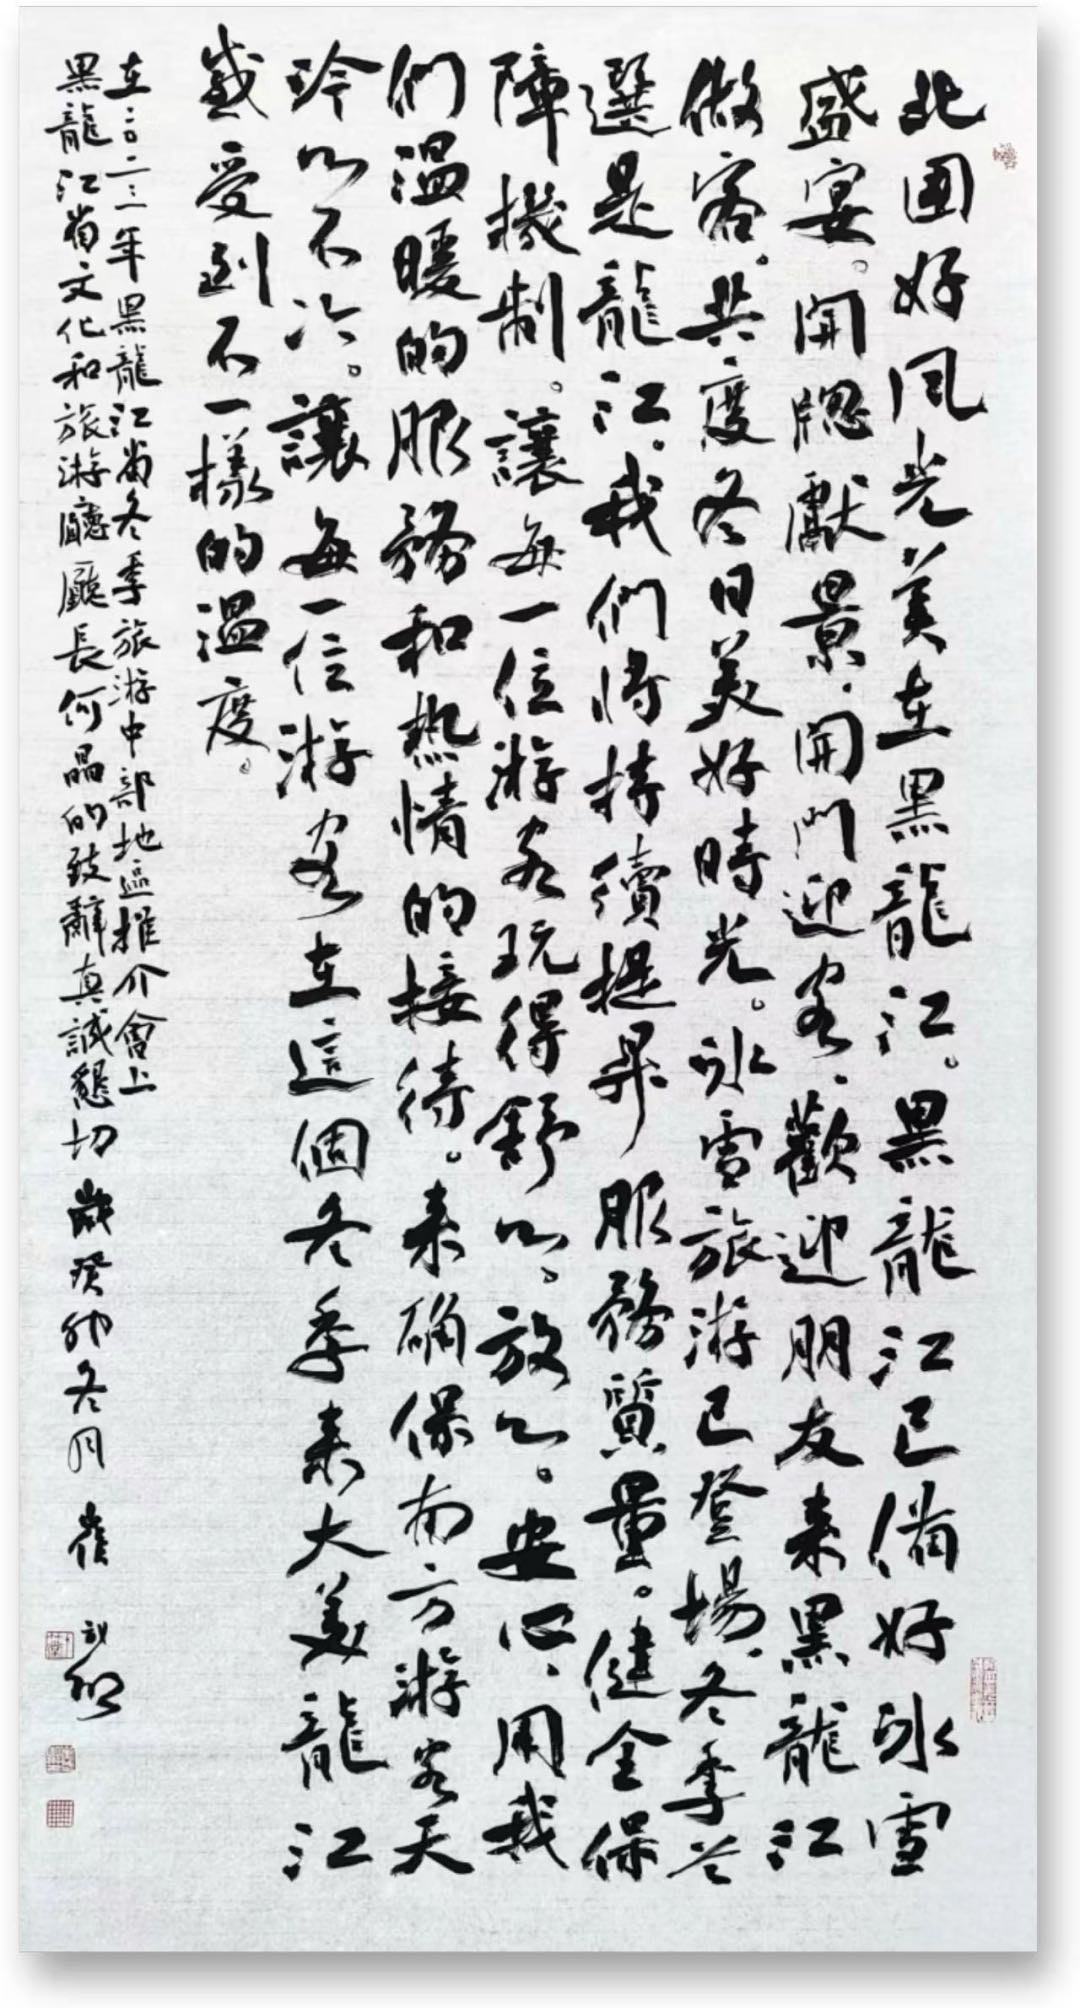 北國好風光美在黑龍江。黑龍江已備好冰雪
盛宴。開窗獻景、開門迎客、歡迎朋友來黑龍江
做客。共度冬日美好時光。冰雪旅游已登場、冬季首
選是龍江。我們將持續提昇服務質量。健全保
障機制。讓每一位游客玩得舒心。放心。安心、用我
們溫暖的服務和熱情的接待。來确保南方游客天
冷心不冷。讓每一位游客在這個冬季來大美龍江
感受到不一樣的溫度。
在二〇二三年黑龍江省冬季旅游中部地區推介會上
黑龍江省文化和旅游廳廳長何晶的致辭真誠懇切 歲癸卯冬月 崔